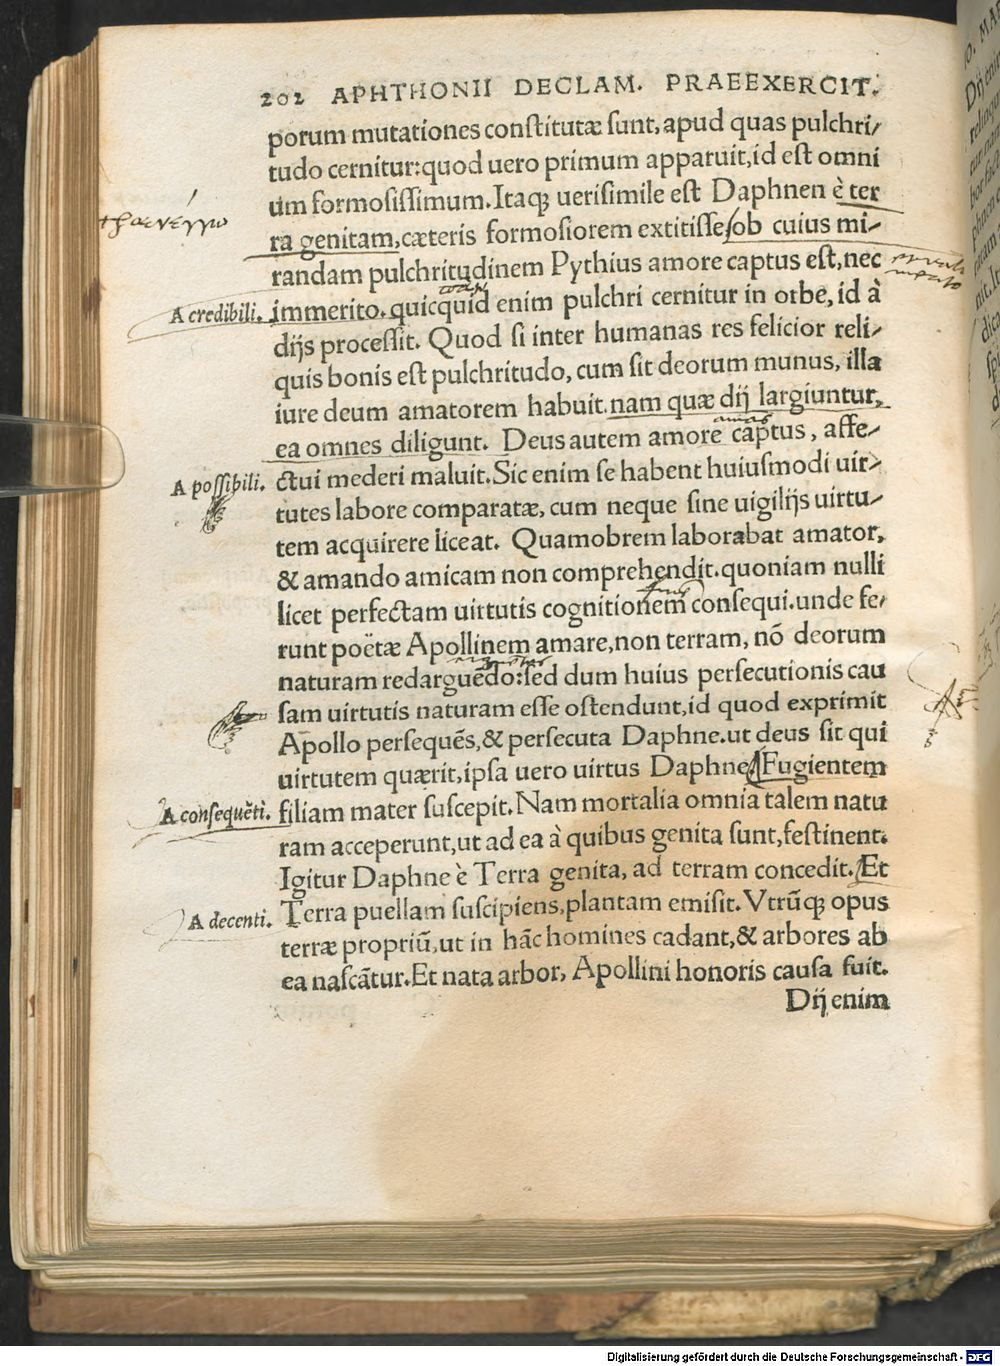 202 APHTHONII DECLAM. PRAEEXERCIT.
porum mutationes constitutæ sunt, apud quas pulchri/
tudo cernitur: quod uero primum apparuit, id est omni
um formosissimum. Itaqꝫ uerisimile est Daphnen è ter
ra genitam, cæteris formosiorem extitisse, ob cuius mi/
randam pulchritudinem Pythius amore captus est, nec
A credibili. immerito. quicquid enim pulchri cernitur in orbe, id à
dijs processit. Quod si inter humanas res felicior reli/
quis bonis est pulchritudo, cum sit deorum munus, illa
iure deum amatorem habuit. nam quæ dij largiuntur,
ea omnes diligunt. Deus autem amore captus, affe/
A possibili. ctui mederi maluit. Sic enim se habent huiusmodi uir/
tutes labore comparatæ, cum neque sine uigilijs uirtu/
tem acquirere liceat. Quamobrem laborabat amator,
& amando amicam non comprehendit. quoniam nulli
licet perfectam uirtutis cognitionem consequi. unde fe/
runt poëtæ Apollinem amare, non terram, nō deorum
naturam redarguēdo: sed dum huius persecutionis cau
sam uirtutis naturam esse ostendunt, id quod exprimit
Apollo persequēs, & persecuta Daphne. ut deus sit qui
uirtutem quærit, ipsa uero uirtus Daphne. Fugientem
A consequēti. filiam mater suscepit. Nam mortalia omnia talem natu
ram acceperunt, ut ad ea à quibus genita sunt, festinent.
Igitur Daphne è Terra genita, ad terram concedit. Et
A decenti. Terra puellam suscipiens, plantam emisit. Vtrūqꝫ opus
terræ propriū, ut in hāc homines cadant, & arbores ab
ea nascātur. Et nata arbor, Apollini honoris causa fuit.
Dij enim
Digitalisierung gefördert durch die Deutsche Forschungsgemeinschaft - DFG